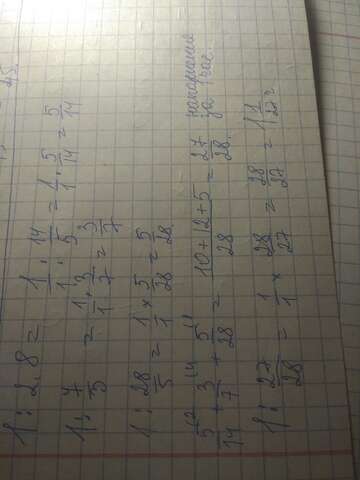 45.
1 : 2,8 = 1/1 : 14/5 = 1/1 · 5/14 = 5/14
1 : 7/3 = 1/1 · 3/7 = 3/7
1 : 28/5 = 1/1 × 5/28 = 5/28
5/14 + 3/7 + 5/28 = (10+12+5)/28 = 27/28 наполнение за 1 час.
1 : 27/28 = 1/1 × 28/27 = 28/27 = 1 1/27